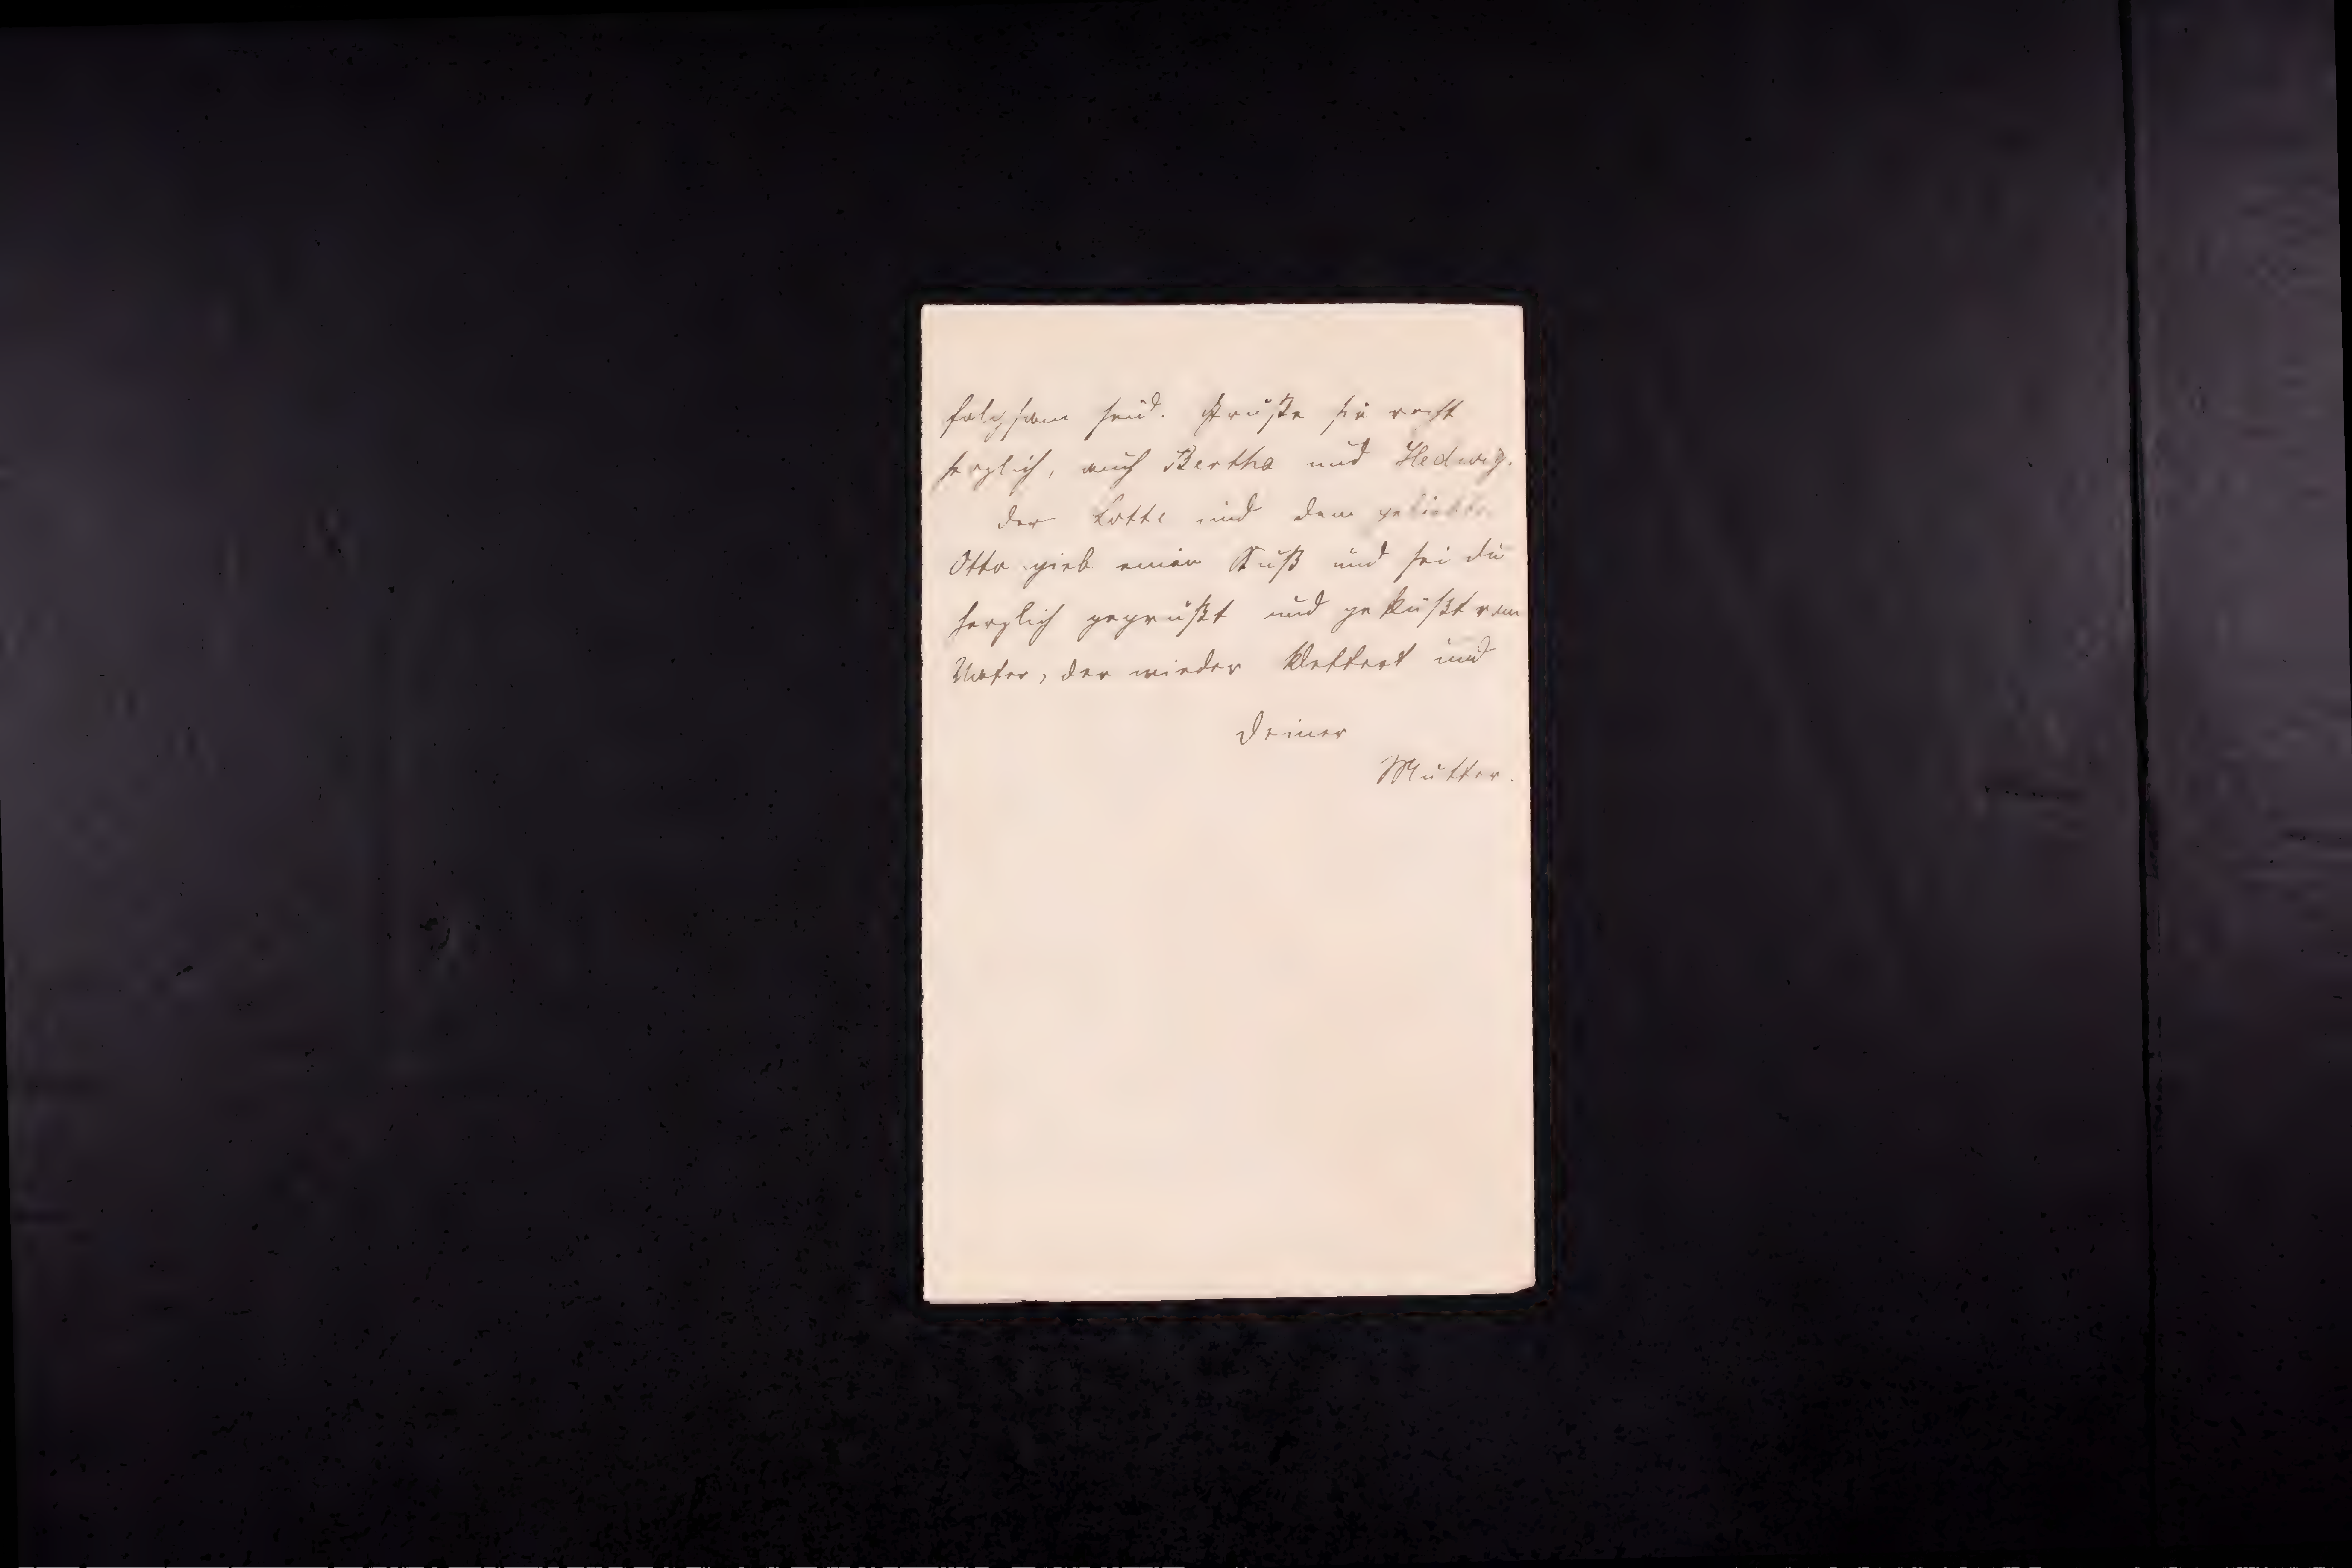 folgsam seid. Grüße sie recht
herzlich, auch Bertha und Hedwig.
der Lotte und dem geliebten
Otto gieb einen Kuß und sei du
herzlich gegrüßt und geküßt vom
Vater, der wieder klettert und
Deiner
Mutter.